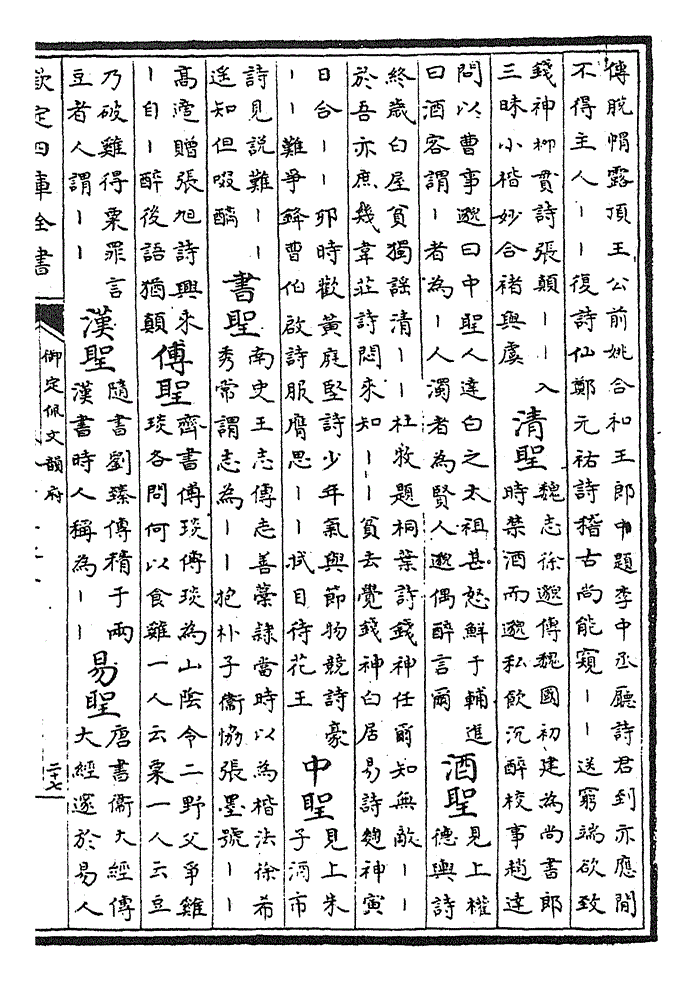 傳脫帽露頂王公前姚合和王郎中題李中丞廳詩君到亦應閒
不得主人丨丨復詩仙鄭元祐詩稽古尚能窺丨丨送窮端欲致
錢神柳貫詩張顛丨丨入
三昧小楷妙合褚與虞
清聖
魏志徐邈傳魏國初建為尚書郎
時禁酒而邈私飲沉醉校事趙達
問以曹事邈曰中聖人達白之太祖甚怒鮮于輔進
曰酒客謂丨者為丨人濁者為賢人邈偶醉言爾
酒聖
見上權
德輿詩
終歲白屋貧獨謡清丨丨杜牧題桐葉詩錢神任爾知無敵丨丨
於吾亦庶幾韋莊詩悶來知丨丨貧去覺錢神白居易詩麯神寅
日合丨丨夘時歡黃庭堅詩少年氣與節物競詩豪
丨丨難爭鋒曹伯啟詩服膺思丨丨拭目待花王
中聖
見上朱
子酒市
詩見説難丨丨
遥知但啜醨
書聖
南史王志傳志善藁隷當時以為楷法徐希
秀常謂志為丨丨抱朴子衞恊張墨號丨丨
高適贈張旭詩興來
丨自丨醉後語猶顛
傅聖
齊書傅琰傳琰為山陰令二野父爭雞
琰各問何以食雞一人云粟一人云豆
乃破雞得粟罪言
豆者人謂丨丨
漢聖
隨書劉臻傳精于兩
漢書時人稱為丨丨
易聖
唐書衞大經傳
大經邃於易人
欽定四庫全書
御定佩文韻府
二十七